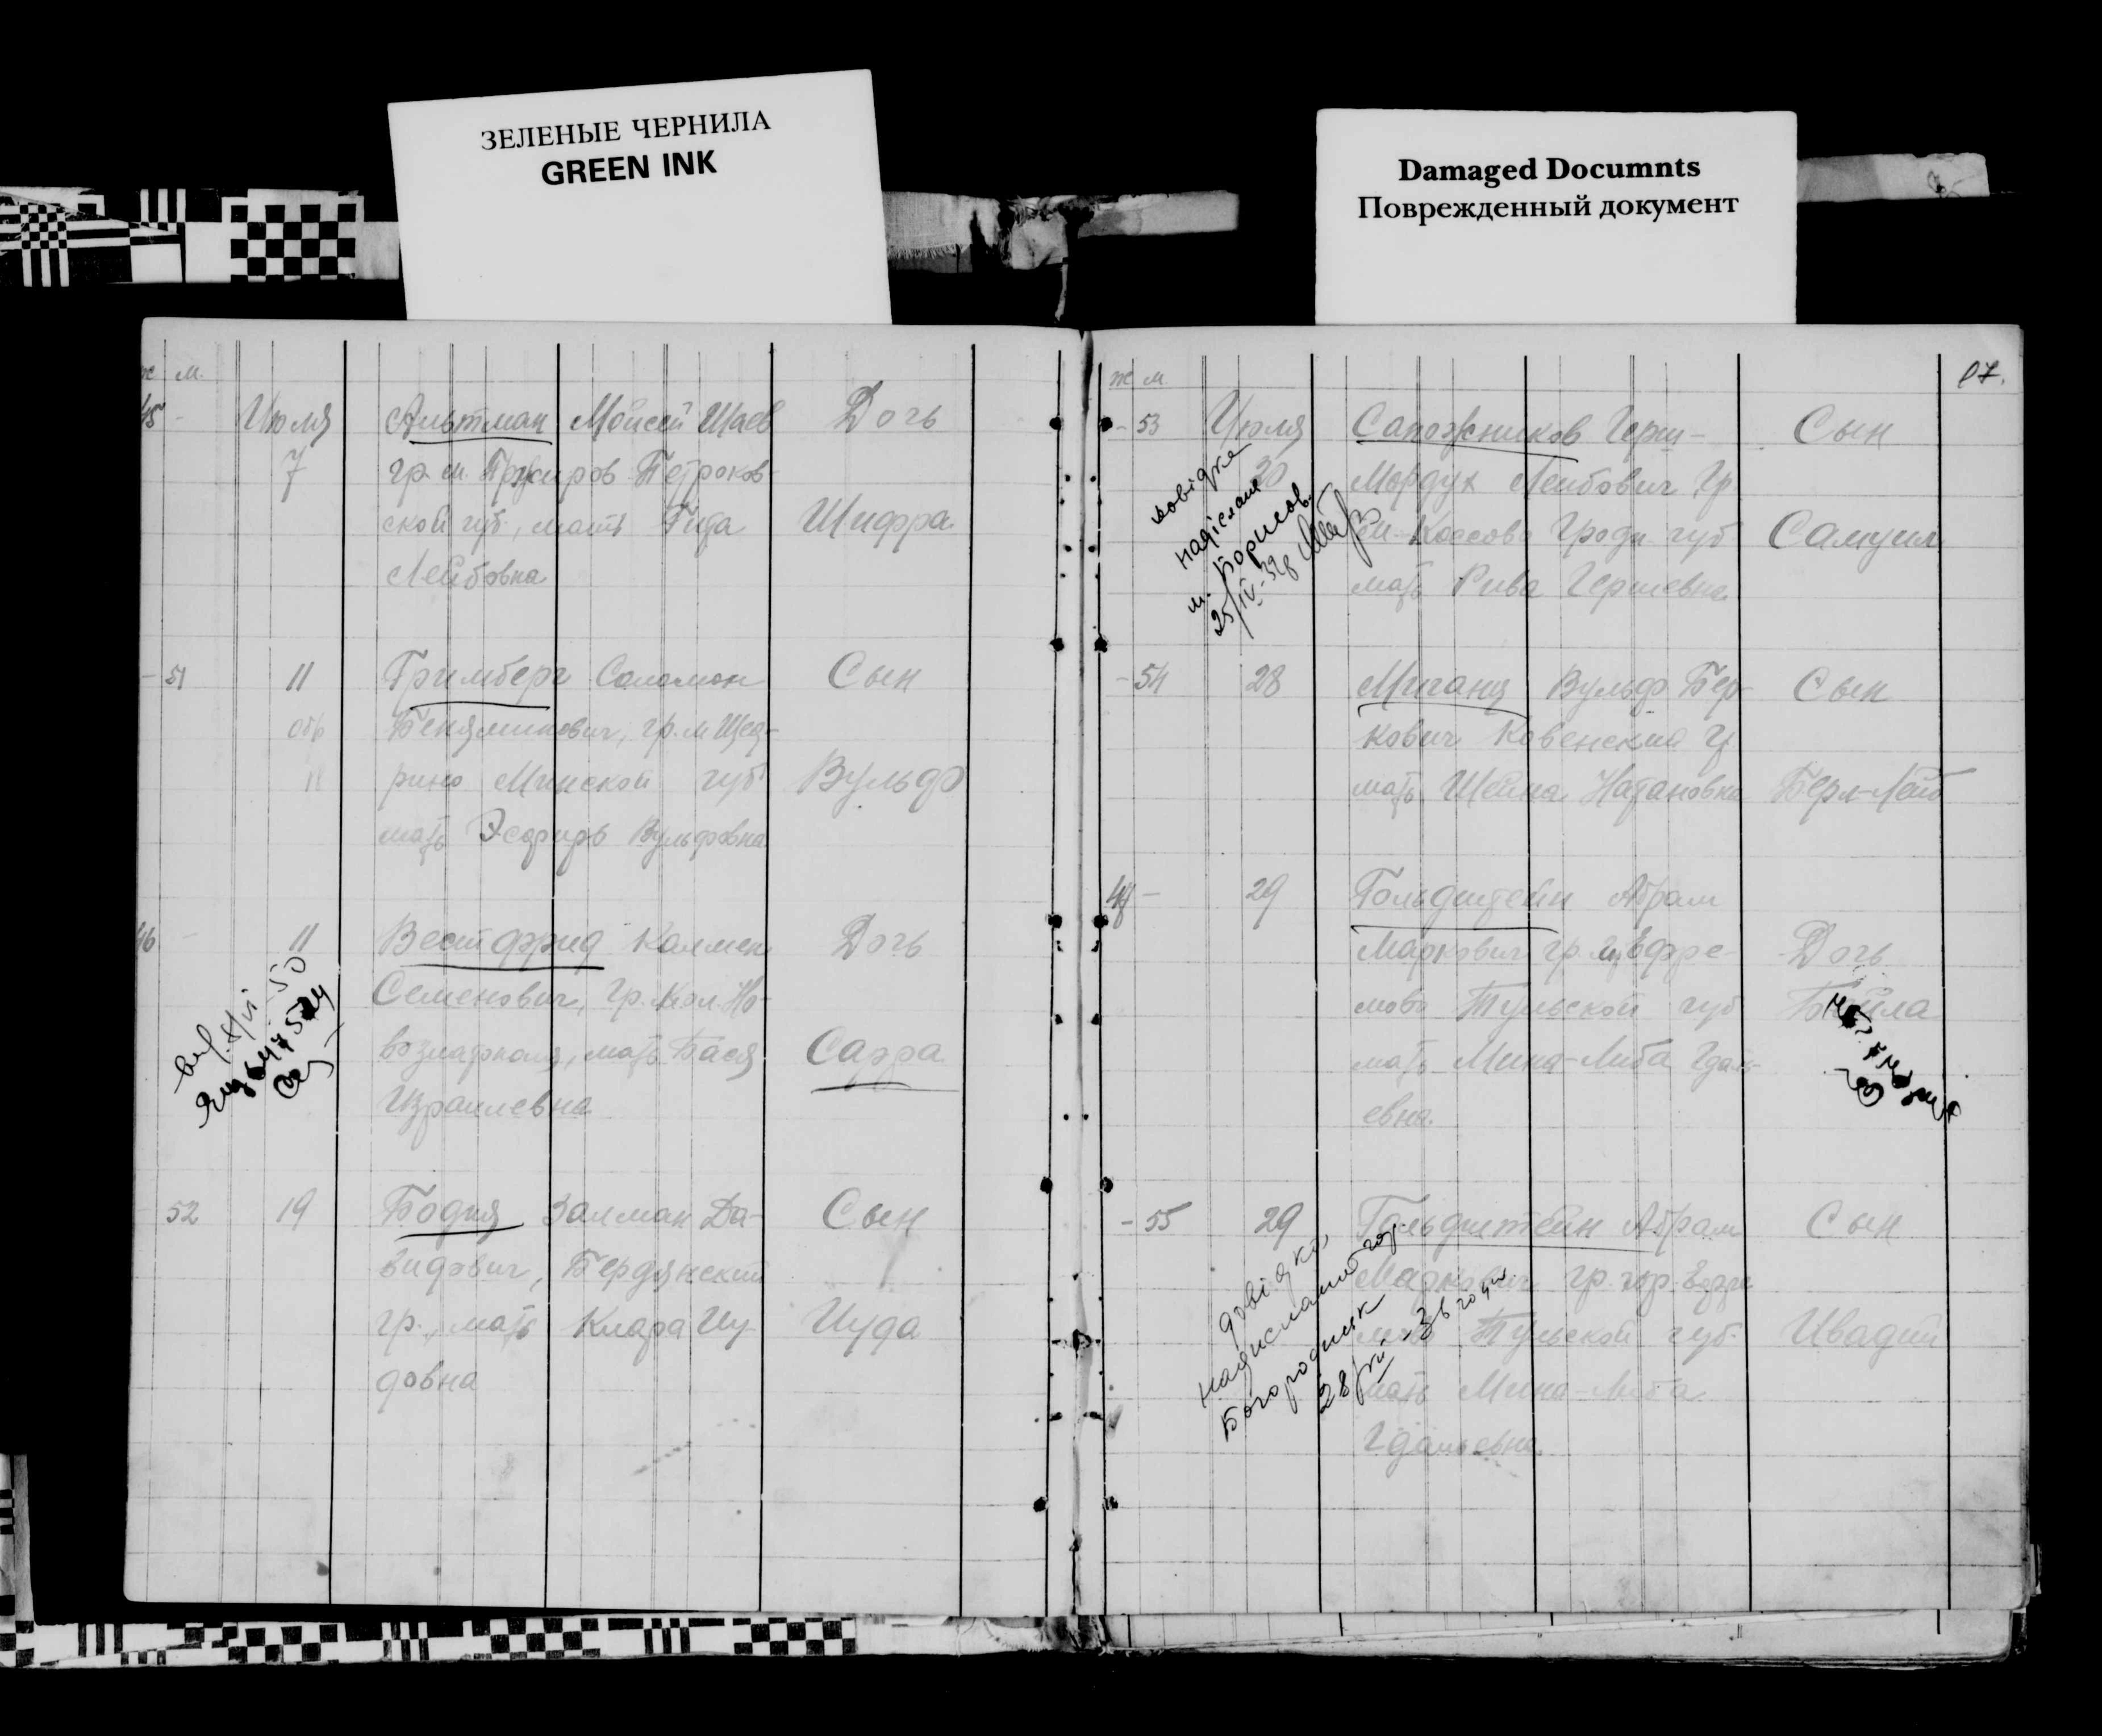 ЗЕЛЕНЫЕ ЧЕРНИЛА
GREEN INK
Damaged Documnts
Поврежденный документ
м.
45 -
Июля
7
Альтман Мойсей Шаев
гр. м. Петроков-
ской губ., мать Гида
Лейбовна
Дочь
Шифра
- 51
11
11
Гримберг Соломон
Беняминович, гр. м Щед-
рино Минской губ
мать Эсфирь Вульфовна
Сын
Вульф
46 -
11
Вестфрид Калман
Семенович, гр. Кол. Но-
мать Бася
Израилевна
Дочь
Сарра
52
19
Бодня Залман Да-
видович, Бердянский
гр., мать Клара Иу-
довна
Сын
Иуда
ж м.
- 53
Июля
30
Сапожников Герш-
Мордух Лейбович Гр
м. Коссово Гродн губ
мать Рива Гершевна
Сын
Самуил
довідка
надіслана
м. Борисов
25/IV-38
- 54
28
Вульф Бер-
кович Ковенский гр
мать Шейна Натановна
Сын
Берл-Лейб
-
29
Гольдштейн Абрам
Маркович гр. Ефре-
мово Тульской губ
мать Мина-Либа Гдал-
евна.
Дочь
Бейла
- 55
29
Гольдштейн Абрам
Маркович гр. гор. Ефре
мово Тульской губ.
мать Мина-Либа
Гдальевна.
Сын
Ивадий
довідка
Богородицк